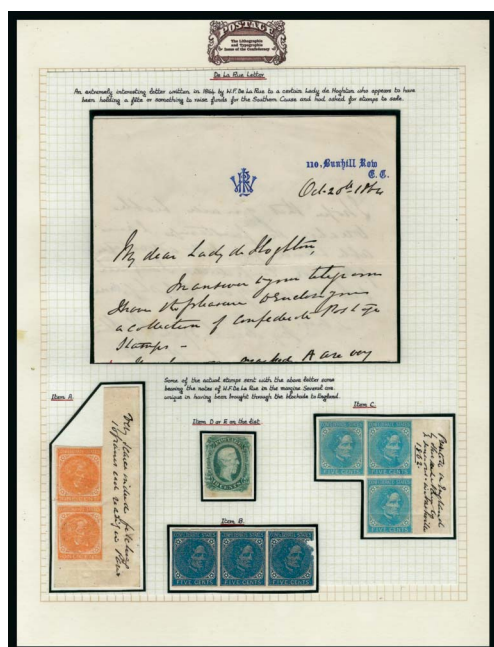 POSTAGE
The Lithographic
and Typographic
Issues of the Confederacy
De La Rue Letter
An extremely interesting letter written in 1864 by W.F. De La Rue to a certain Lady de Hoghton who appears to have
been holding a fête or something to raise funds for the Southern Cause and had asked for stamps to sale.
110, Bunhill Row
E.C.
Oct. 20th 1864
My dear Lady de Hoghton,
In answer to your telegram
I have the pleasure to enclose you
a collection of Confederate Postage
Stamps -
marked A are very
Some of the actual stamps sent with the above letter some
bearing the notes of W.F. De La Rue in the margins Several are
unique in having been brought through the blockade to England.
Item A.
Item D or E on the list
Item C.
Very scarce indeed fetching
in Paris
Printed in England
1862
Item B.
FIVE CENTS
FIVE CENTS
FIVE CENTS
FIVE CENTS
FIVE CENTS
FIVE CENTS